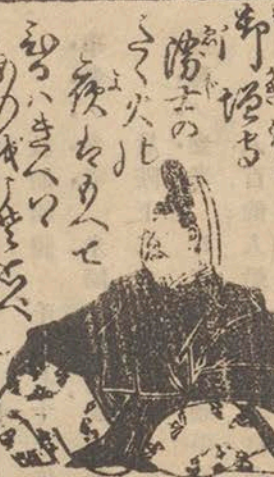 御垣守
衛士の
たく火の
夜はもへて
ひるハきへつゝ
ものをこそ思へ